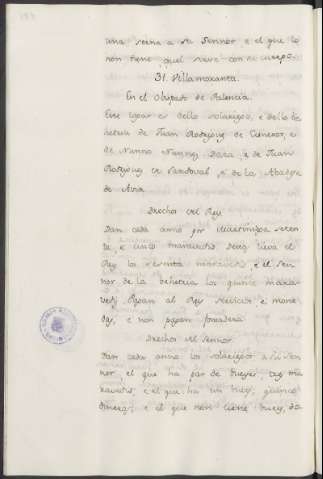 una serna a su Sennor e el que lo
non tiene, quel sirve con su cuerpo.
31. Villamoranta.
En el Obispado de Palencia.
Este logar es dello solariego, e dello be
hetria de Juan Rodriguez de Cisneros, e
de Nunno Nunnez Daza, e de Juan
Rodriguez de Sandoval, e de la Abadesa
de
Drechos del Rey
Dan cada anno por martiniega seten
ta, e cinco maravedis, desto lieva el
Rey los sesenta maravedis, e el Sen
nor de la behetria los quince marav
edis. Pagan al Rey servicios, e mone
das, e non pagan fonsadera.
Drechos del Sennor.
Dan cada anno los solariegos a su Sen
nor, el que ha par de bueyes, tres ma
ravedis, e el que ha un buey, quince
dineros, e el que non tiene buey, do